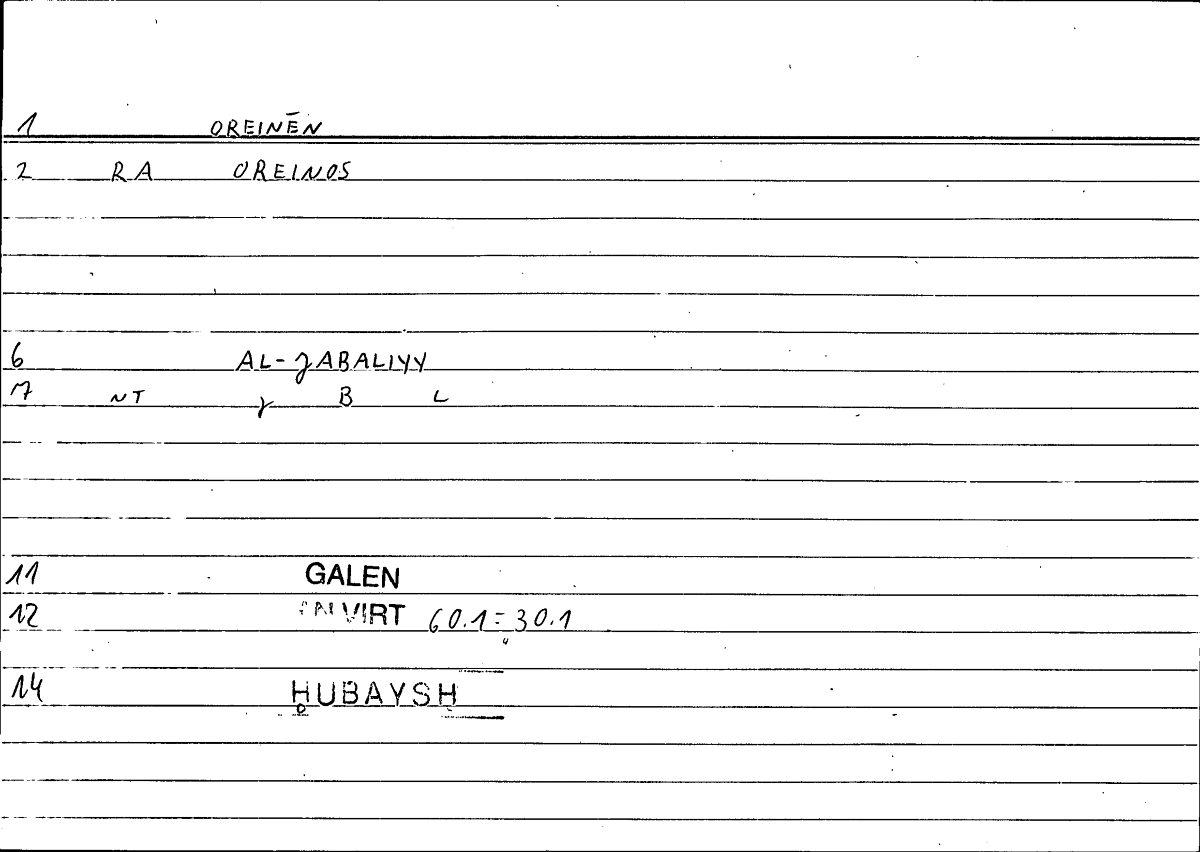 1 OREINĒN
2 RA OREINOS
6 AL-ɣABALIYY
7 NT ɣ B L
11 GALEN
12 AN VIRT 60.1 = 30.1
14 ḤUBAYSH